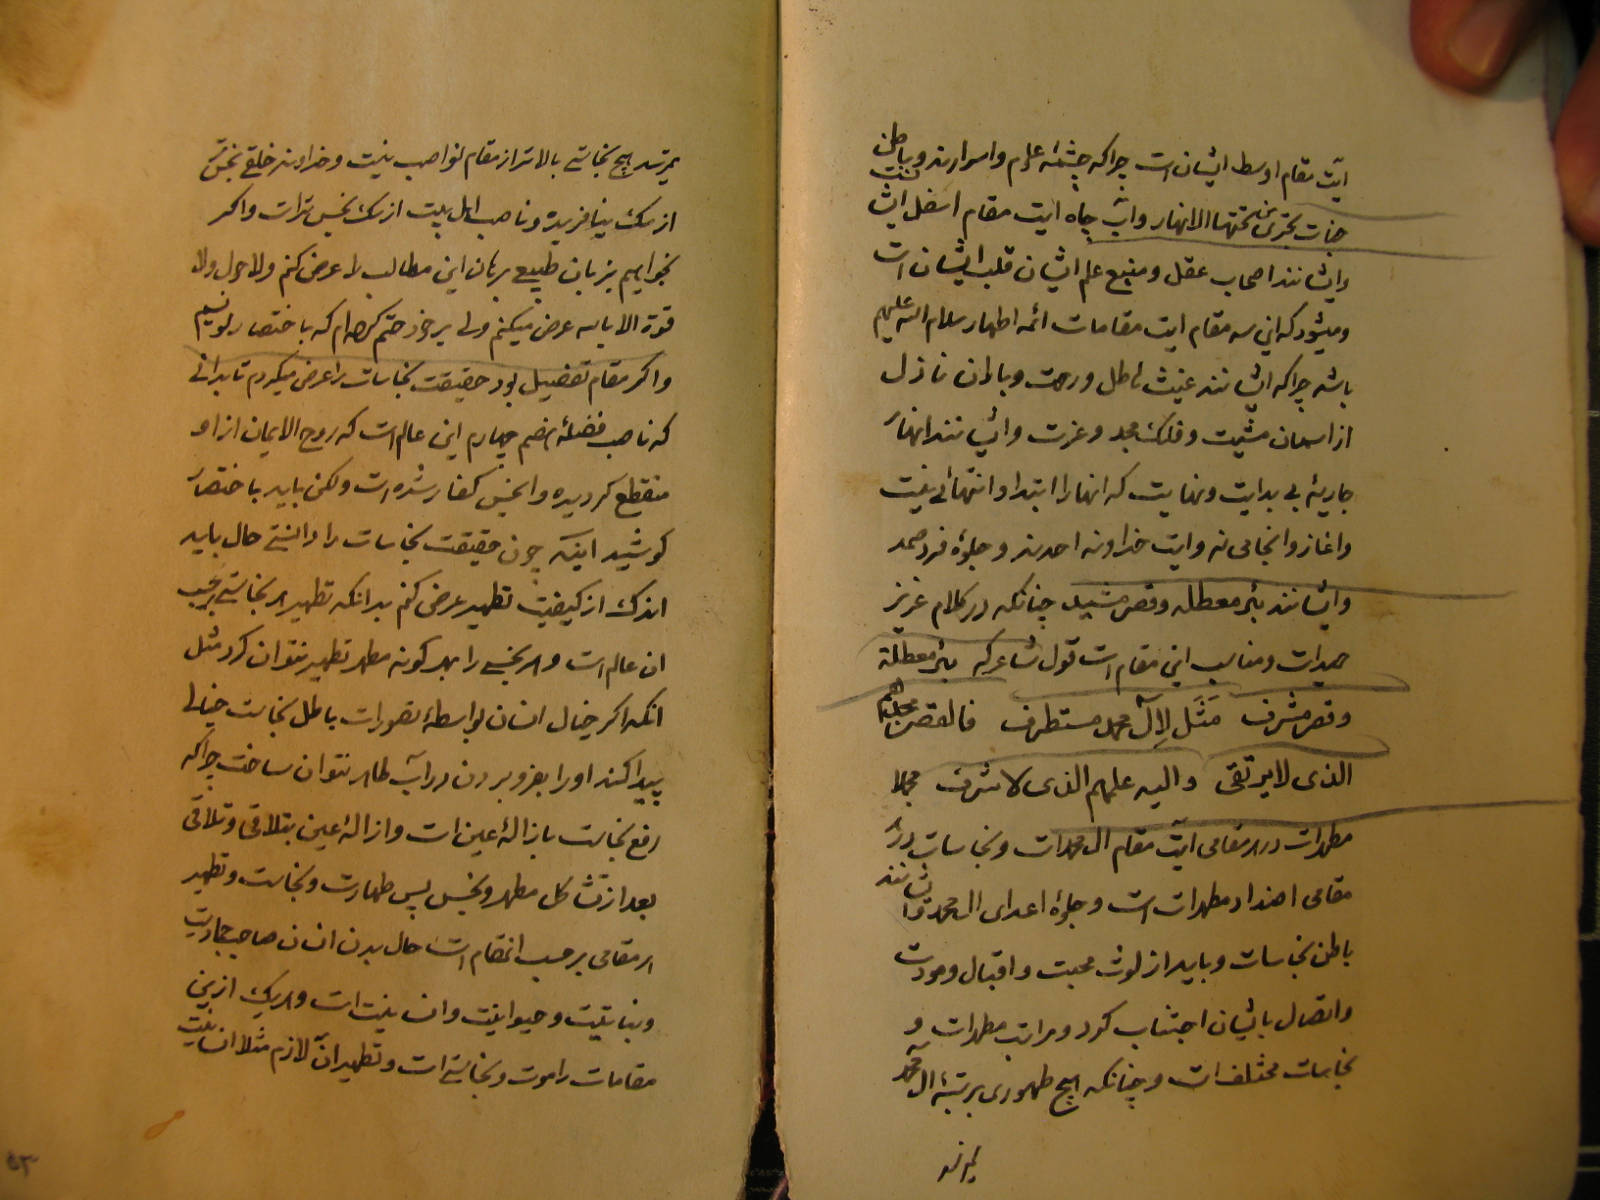 آیت مقام اوسط ایشان است چرا که چشمه علوم و اسرارند و باطن
جنات تجری من تحتها الانهار و آب چاه آیت مقام اسفل ایشان است
و ایشانند اصحاب عقل و منبع علم ایشان قلب ایشان است
و میشود که این سه مقام آیت مقامات ائمه اطهار سلام الله علیهم
باشد چرا که ایشانند غیث هاطل و رحمت و باران نازل
از آسمان مشیت و فلک مجد و عزت و ایشانند انهار
جاریهٔ بی بدایت و نهایت که انها را ابتدا و انتهائی نیست
و اغاز و انجامی نه و آیت خداوند احدند و جلوهٔ فرد صمد
و ایشانند بئر معطله و قصر مشید چنانکه در کلام عزیز
حمید است و مناسب این مقام است قول شاعر که بئر معطلة
و قصر مشرف مَثَل لِآل محمد مستطرف فالقصر مجدهم
الذی لا یرتقی والبئر علمهم الذی لا ینزف مجملا
مطهرات در هر مقامی آیت مقام ال محمد است و نجاسات در هر
مقامی اضداد مطهرات است و جلوهٔ اعدای ال محمد و ایشانند
باطن نجاسات و باید از لوث محبت و اقبال و مودت
و اتصال بایشان اجتناب کرد و مراتب مطهرات و
نجاسات مختلف است و چنانکه هیچ طهوری بمرتبهٔ ال محمد
نمیرسد
نمیرسد هیچ نجاستی بالاتر از مقام نواصب نیست و خداوند خلقی نجس تر
از سک نیافریده و ناصب اهل بیت از سک نجس تر است و اکر
بخواهیم بزبان طبیعی برهان این مطالب را عرض کنم و لا حول و لا
قوة الا بالله عرض میکنم ولی بر خود حتم کرده ام که باختصار بنویسم
و اکر مقام تفصیل بود حقیقت نجاسات را عرض میکردم تا بدانی
که ناصب فضلهٔ هضم چهارم این عالم است که روح الایمان از او
منقطع کردیده و انجس کفار شده است ولکن باید باختصار
کوشید اینکه چون حقیقت نجاسات را دانستی حال باید
اندک از کیفیت تطهیر عرض کنم بدانکه تطهیر هر نجاستی بحسب
ان عالم است و هر نجسی را بهر کونه مطهر تطهیر نتوان کرد مثل
انکه اکر خیال انسان بواسطهٔ تصورات باطل نجاست خیالی
پیدا کند او را بفرو بردن در آب طاهر نتوان ساخت چرا که
رفع نجاست بازالهٔ عین است و ازالهٔ عین بتلاقی و تلاقی
بعد از تشاکل مطهر و نجس پس طهارت و نجاست و تطهیر
هر مقامی بر حسب انمقام است حال بدن انسان صاحب جمادیت
و نباتیت و حیوانیت و انسانیت است و هر یک از این
مقامات را موت و نجاستی است و تطهیر ان لازم مثلا انسانیت
۵۳